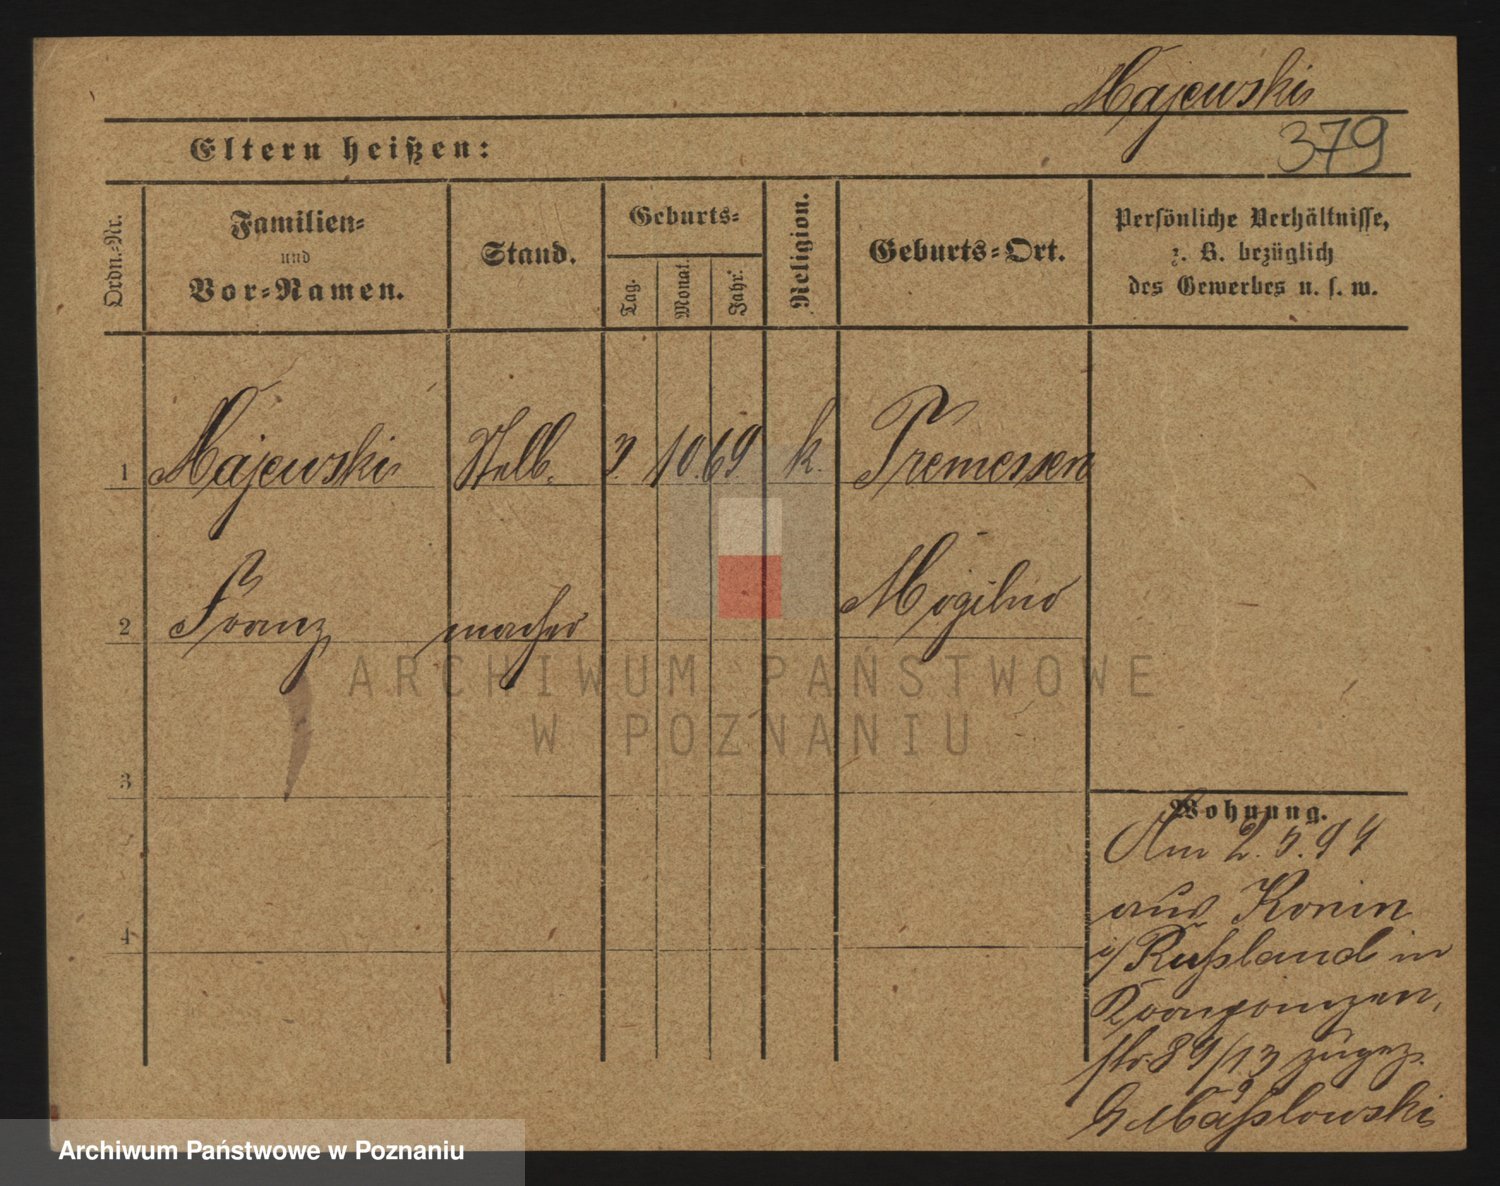 Majewski
379
Eltern heißen:
Ordn.-Nr.
Familien-
und
Vor-Namen.
Stand.
Geburts-
Tag.
Monat.
Jahr.
Religion.
Geburts-Ort.
Persönliche Verhältnisse,
z. B. bezüglich
des Gewerbes u. s. w.
1 Majewski Stell- 3. 10. 69 k. Tremessen
2 Franz macher Mogilno
3
4
Wohnung.
Am 2. 5. 94
aus Konin
i/ Rußland in
str. 84/13 zugez.
Maßlowski
ARCHIWUM PAŃSTWOWE
W POZNANIU
Archiwum Państwowe w Poznaniu